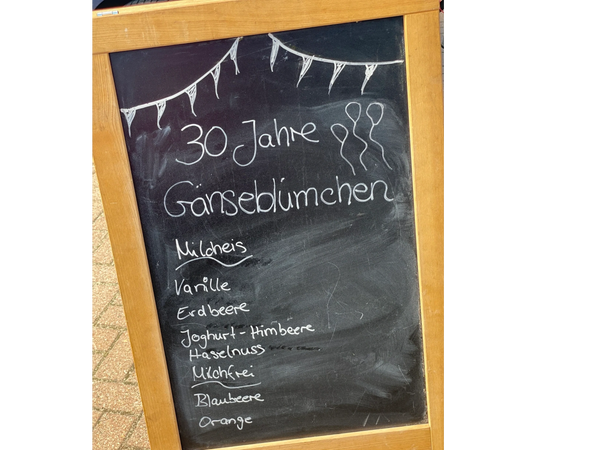 30 Jahre
Gänseblümchen
Milcheis
Vanille
Erdbeere
Joghurt-Himbeere
Haselnuss
Milchfrei
Blaubeere
Orange